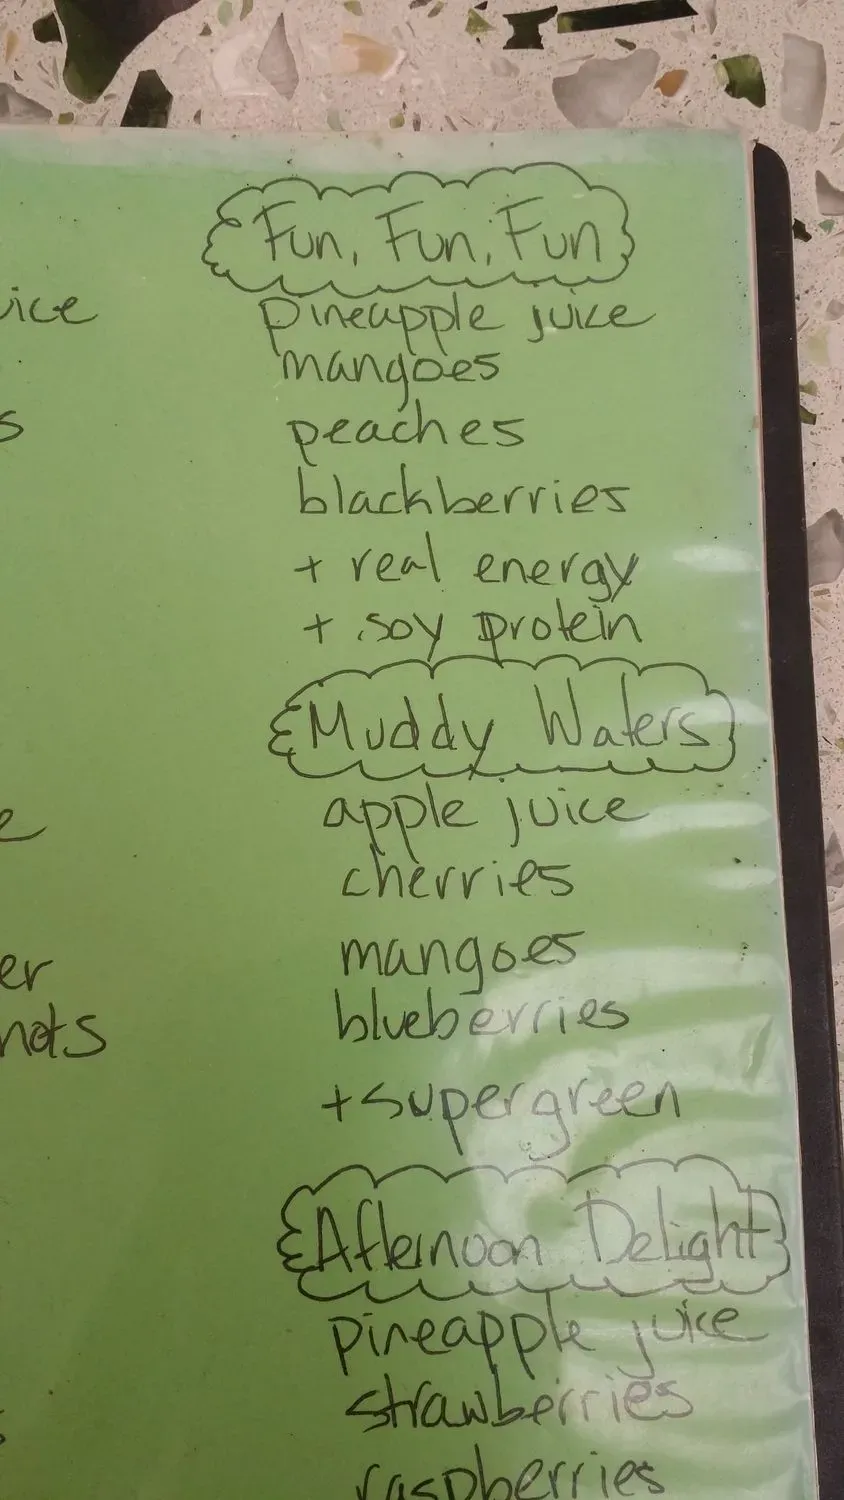 Fun, Fun, Fun
pineapple juice
mangoes
peaches
blackberries
+ real energy
+ soy protein
Muddy Waters
apple juice
cherries
mangoes
blueberries
+ supergreen
Afternoon Delight
pineapple juice
strawberries
raspberries